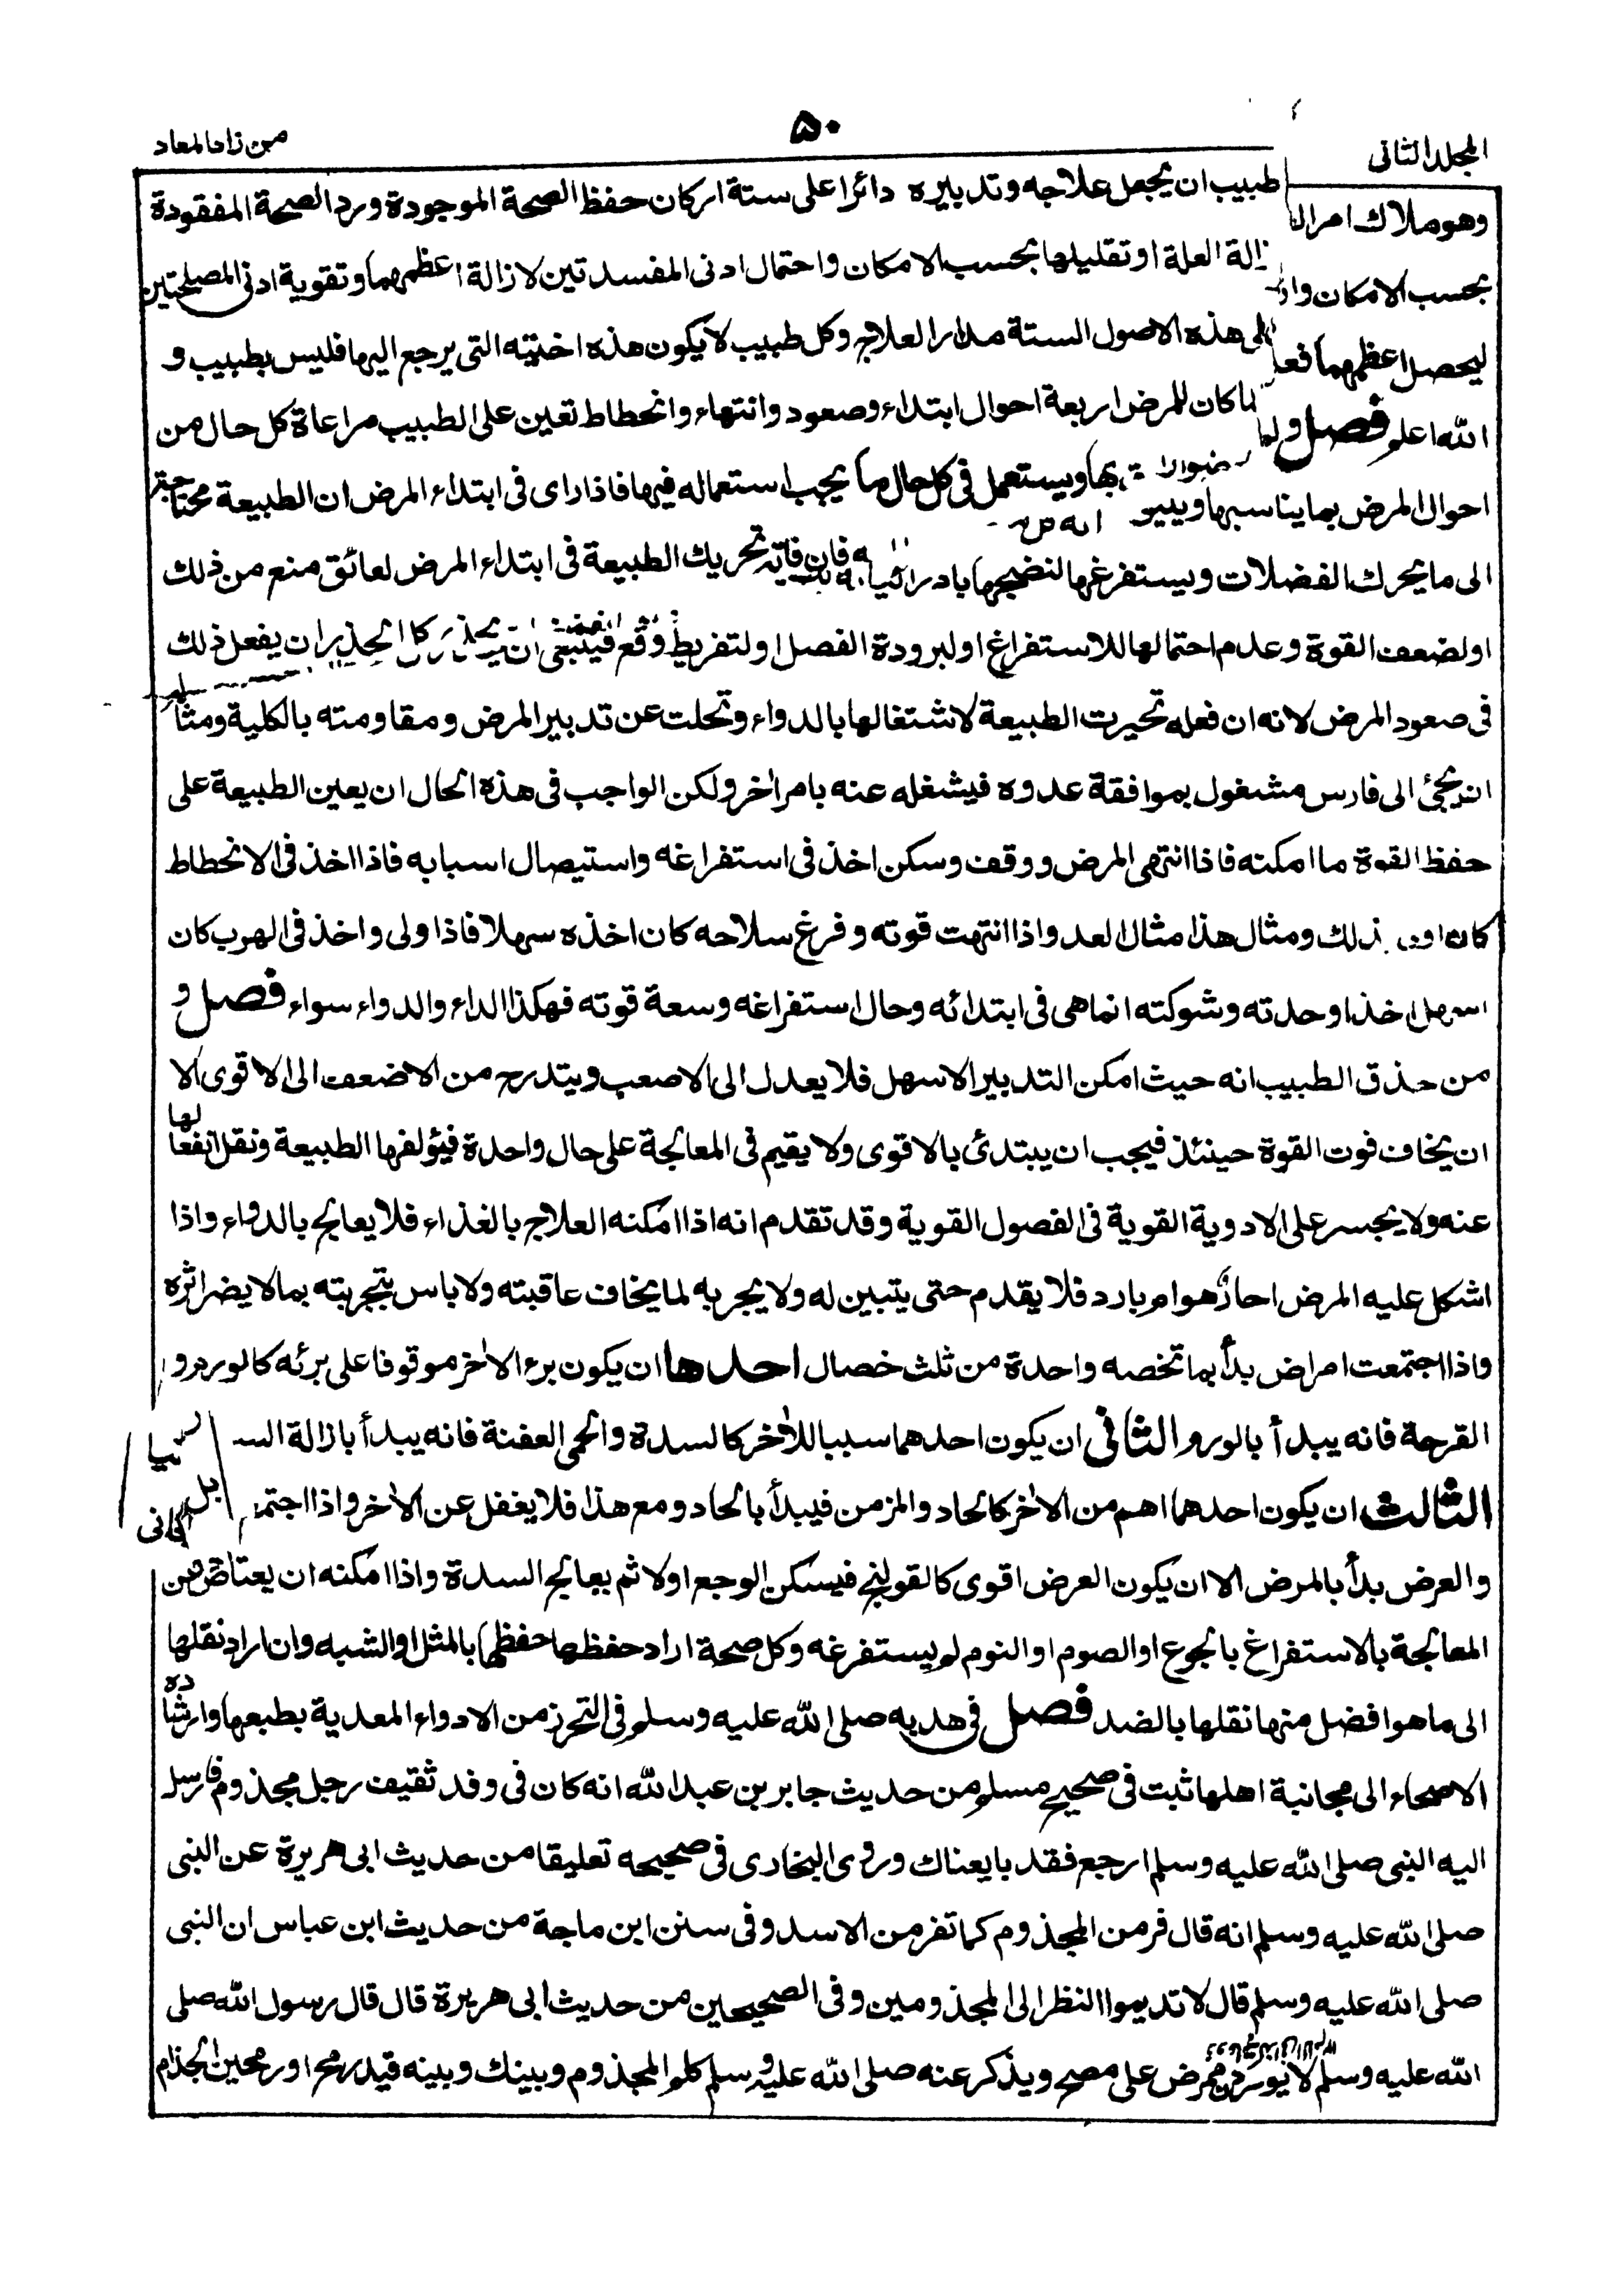 المجلد الثانى
۵۰
من زاد المعاد
وهو ملاك امر الطبيب ان يجعل علاجه وتدبيره دائرا على ستة اركان حفظ الصحة الموجودة ورد الصحة المفقودة
بحسب الامكان وازالة العلة او تقليلها بحسب الامكان واحتمال ادنى المفسدتين لازالة اعظمهما وتقوية ادنى المصلحتين
ليحصل اعظمهما فعلى هذه الاصول الستة مدار العلاج وكل طبيب لا يكون هذه اخيته التى يرجع اليها فليس بطبيب و
الله اعلم فصل ولما كان للمرض اربعة احوال ابتداء وصعود وانتهاء وانحطاط تعين على الطبيب مراعاة كل حال من
احوال المرض بما يناسبها ويليق بها ويستعمل فى كل حال ما يجب استعماله فيها فاذا راى فى ابتداء المرض ان الطبيعة محتاجة
الى ما يحرك الفضلات ويستفرغها لنضجها بادر اليه فان فاته تحريك الطبيعة فى ابتداء المرض لعائق منع من ذلك
او لضعف القوة وعدم احتمالها للاستفراغ او لبرودة الفصل او لتفريط وقع فينبغى ان يحذر كل الحذر ان يفعل ذلك
فى صعود المرض لانه ان فعله تحيرت الطبيعة لاشتغالها بالدواء وتخلت عن تدبير المرض ومقاومته بالكلية ومثاله
ان يجئ الى فارس مشغول بموافقة عدوه فيشغله عنه بامر اخر ولكن الواجب فى هذه الحال ان يعين الطبيعة على
حفظ القوة ما امكنه فاذا انتهى المرض ووقف وسكن اخذ فى استفراغه واستيصال اسبابه فاذا اخذ فى الانحطاط
كان ذلك ومثال هذا مثال العدو اذا انتهت قوته وفرغ سلاحه كان اخذه سهلا فاذا ولى واخذ فى الهرب كان
اسهل اخذا وحدته وشوكته انما هى فى ابتدائه وحال استفراغه وسعة قوته فهكذا الداء والدواء سواء فصل و
من حذق الطبيب انه حيث امكن التدبير الاسهل فلا يعدل الى الاصعب ويتدرج من الاضعف الى الاقوى الا
ان يخاف فوت القوة حينئذ فيجب ان يبتدئ بالاقوى ولا يقيم فى المعالجة على حال واحدة فيؤلفها الطبيعة ونقل انفعالها
عنه ولا يجسر على الادوية القوية فى الفصول القوية وقد تقدم انه اذا امكنه العلاج بالغذاء فلا يعالج بالدواء واذا
اشكل عليه المرض احار هو ام بارد فلا يقدم حتى يتبين له ولا يجربه لما يخاف عاقبته ولا باس بتجربته بما لا يضر اثره
واذا اجتمعت امراض بدأ بما تخصه واحدة من ثلث خصال احدها ان يكون برء الاخر موقوفا على برئه كالورم و
القرحة فانه يبدأ بالورم والثانى ان يكون احدهما سببا للاخر كالسدة والحمى العفنة فانه يبدأ بازالة
الثالث ان يكون احدهما اهم من الاخر كالحاد والمزمن فيبدأ بالحاد ومع هذا فلا يغفل عن الاخر واذا
والعرض بدأ بالمرض الا ان يكون العرض اقوى كالقولنج فيسكن الوجع اولا ثم يعالج السدة واذا امكنه ان يعتاض من
المعالجة بالاستفراغ بالجوع او الصوم او النوم لم يستفرغه وكل صحة اراد حفظها حفظها بالمثل او الشبه وان اراد نقلها
الى ما هو افضل منها نقلها بالضد فصل فى هديه صلى الله عليه وسلم فى التحرز من الادواء المعدية بطبعها وارشاده
الاصحاء الى مجانبة اهلها ثبت فى صحيح مسلم من حديث جابر بن عبد الله انه كان فى وفد ثقيف رجل مجذوم فارسل
اليه النبى صلى الله عليه وسلم ارجع فقد بايعناك وروى البخارى فى صحيحه تعليقا من حديث ابى هريرة عن النبى
صلى الله عليه وسلم انه قال فر من المجذوم كما تفر من الاسد وفى سنن ابن ماجة من حديث ابن عباس ان النبى
صلى الله عليه وسلم قال لا تديموا النظر الى المجذومين وفى الصحيحين من حديث ابى هريرة قال قال رسول الله صلى
الله عليه وسلم لا يوردن ممرض على مصح ويذكر عنه صلى الله عليه وسلم كلم المجذوم وبينك وبينه قيد رمح او رمحين الجذام